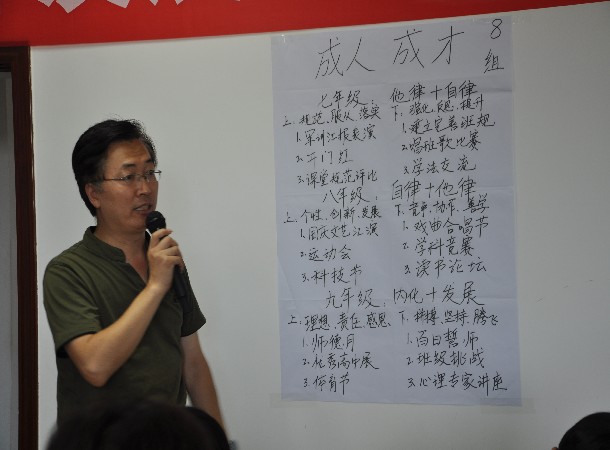 成人 成才 8组
七年级: 他律+自律
上: 规范、服从、落实 下: 强化、反思、提升
1.军训汇报表演 1.建立完善班规
2.开门红 2.唱班歌比赛
3.课堂规范评比 3.学法交流
八年级: 自律+他律
上: 个性、创新、发展 下: 竞争、协作、善学
1.国庆文艺汇演 1.戏曲合唱节
2.运动会 2.学科竞赛
3.科技节 3.读书论坛
九年级: 内化+发展
上: 理想、责任、感恩 下: 拼搏、坚持、腾飞
1.师德月 1.百日誓师
2.优秀高中展 2.班级挑战
3.体育节 3.心理专家讲座